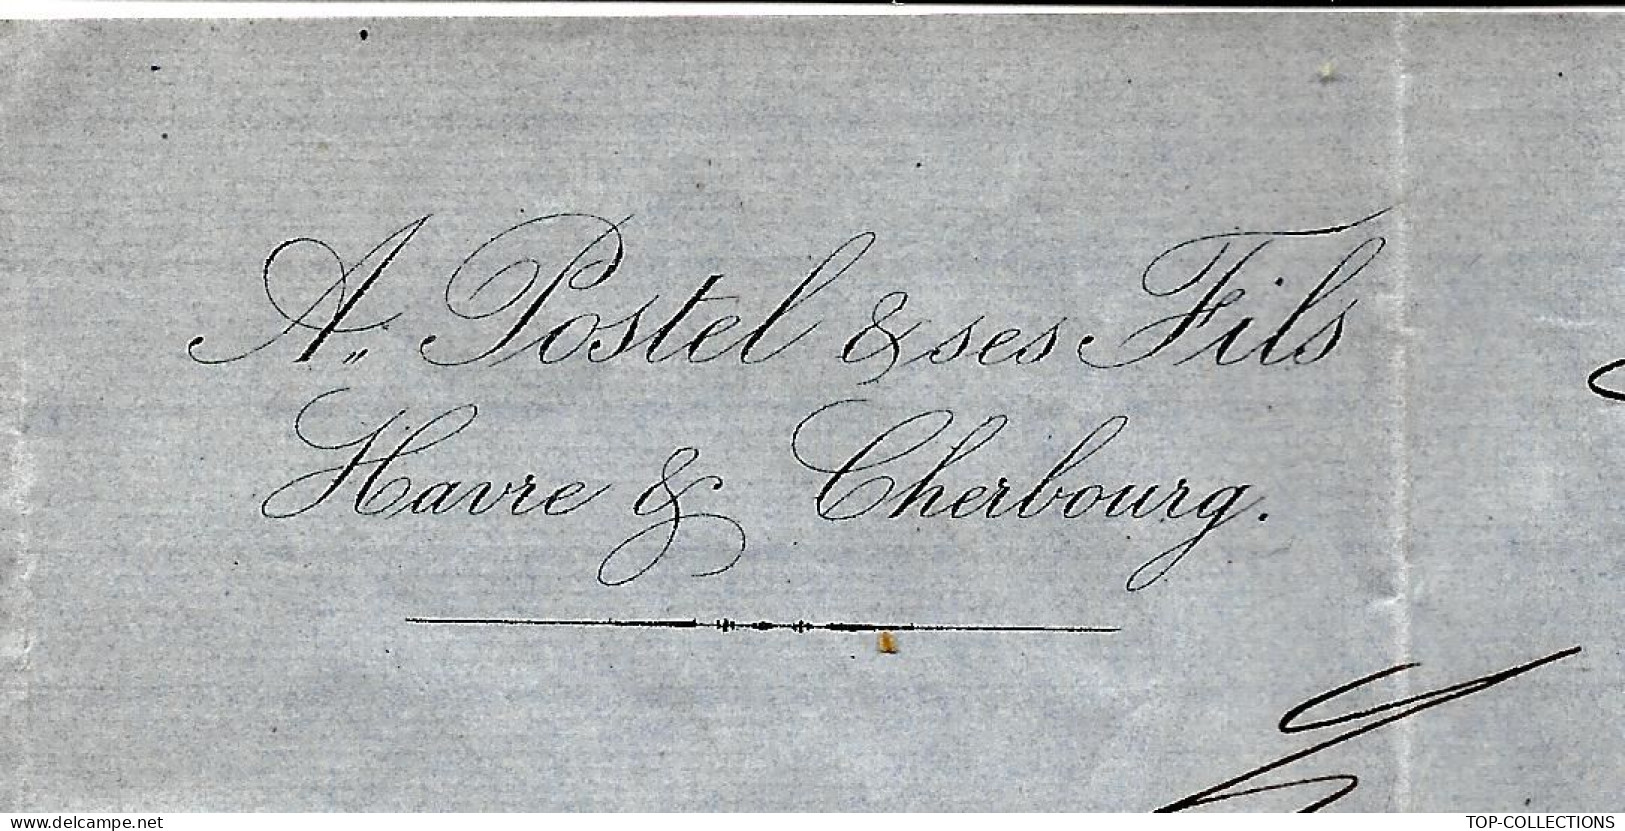 A,, Postel & ses Fils
Havre & Cherbourg.
www.delcampe.net
TOP-COLLECTIONS